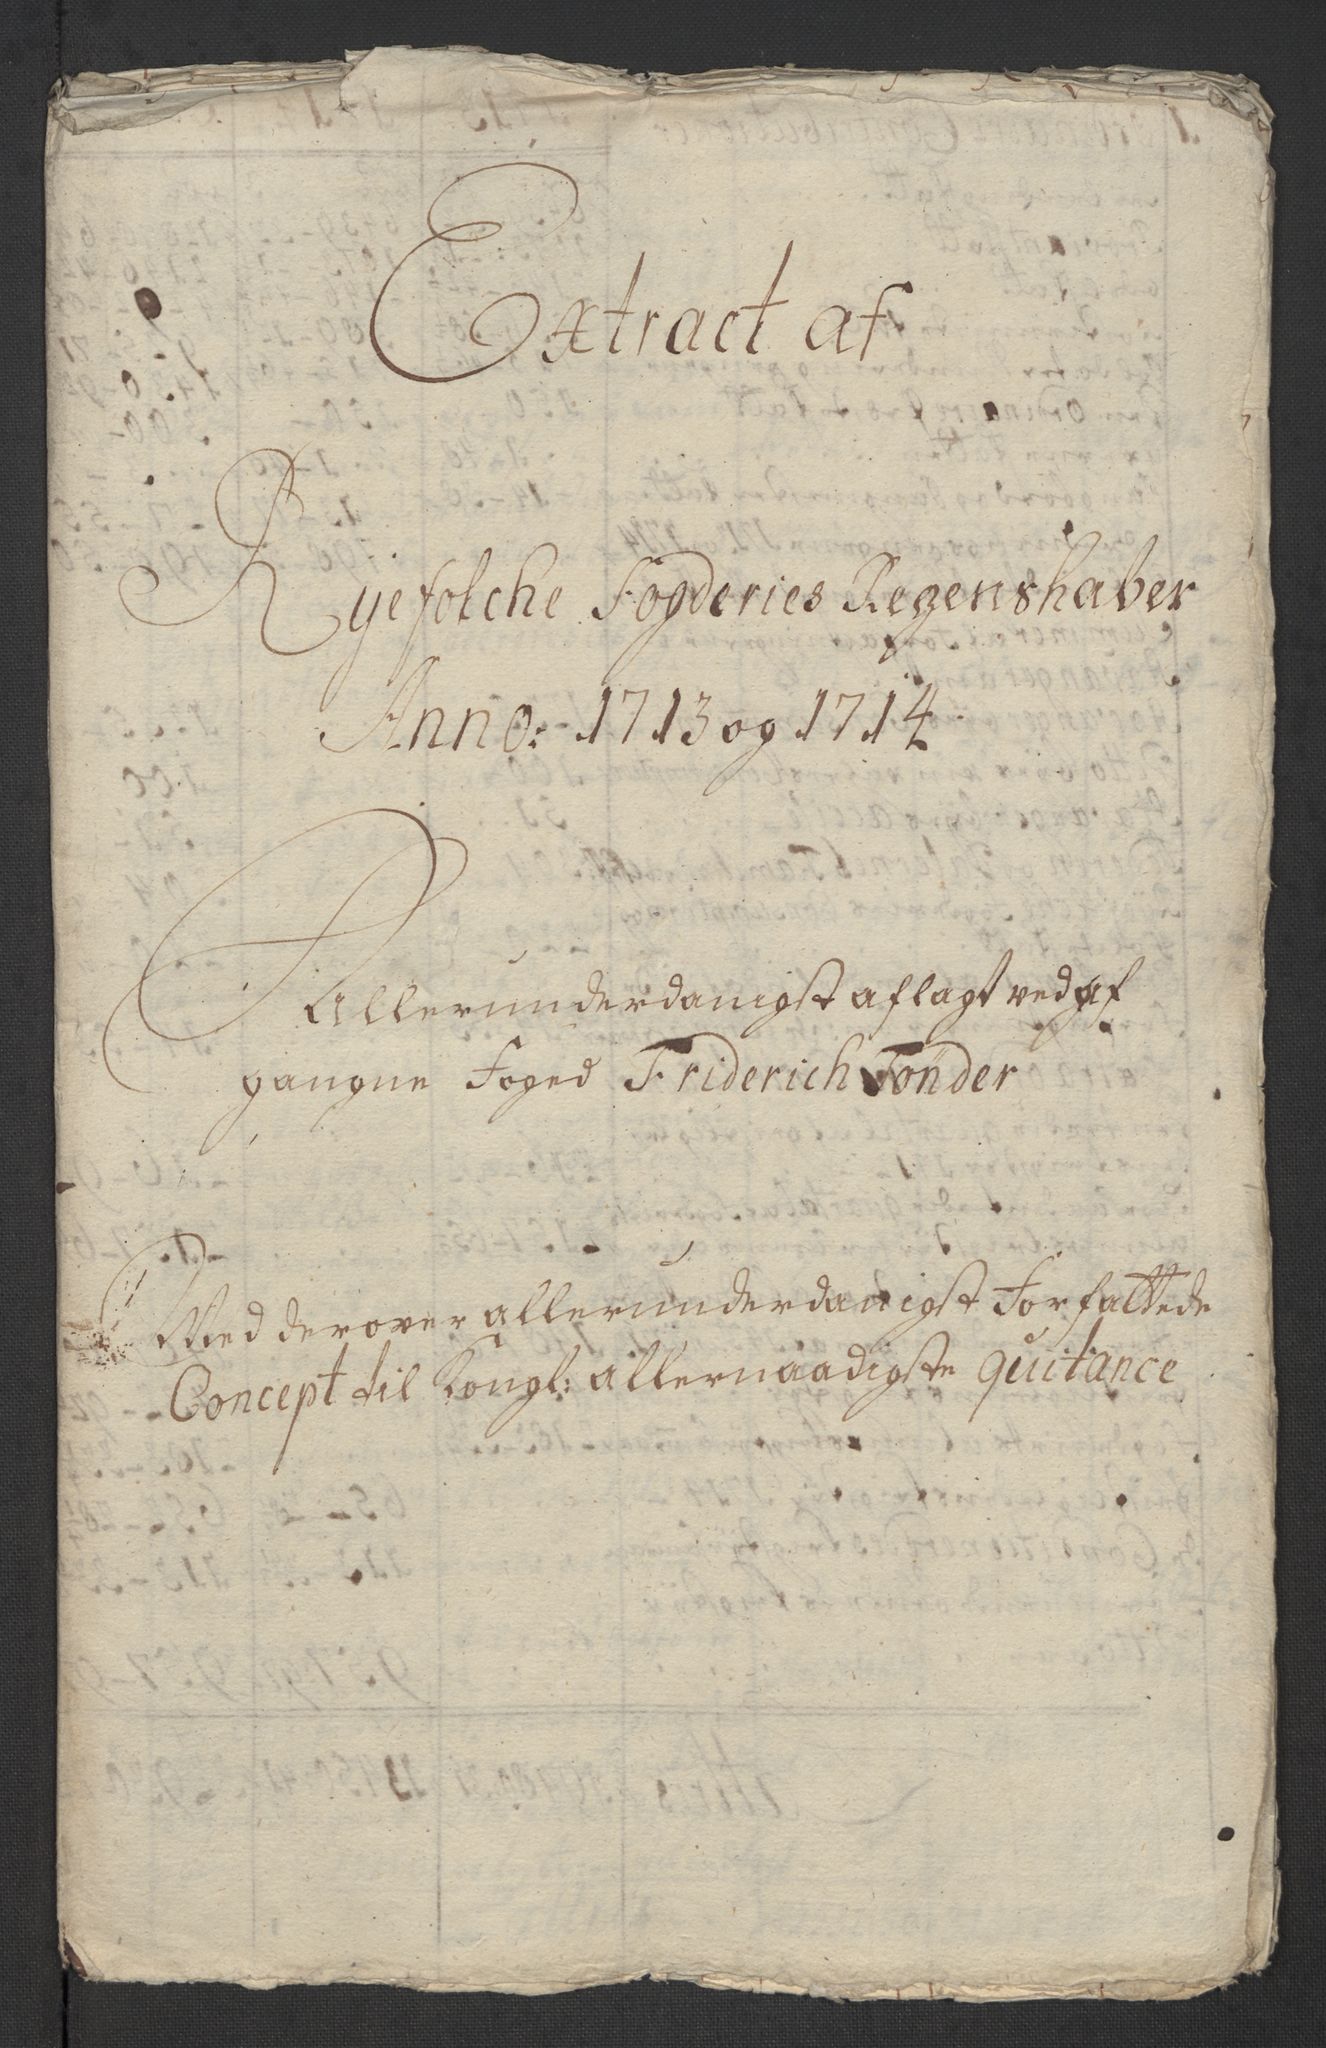 Extract af
Ryefolche Fogderies Regenshaber
Anno: 1713 og 1714
Allerunderdanigst aflagt ved af
gangne Foged Friderich Tønder
Med derover allerunderdanigst Forfattede
Concept til Kongl: allernaadigste quitance